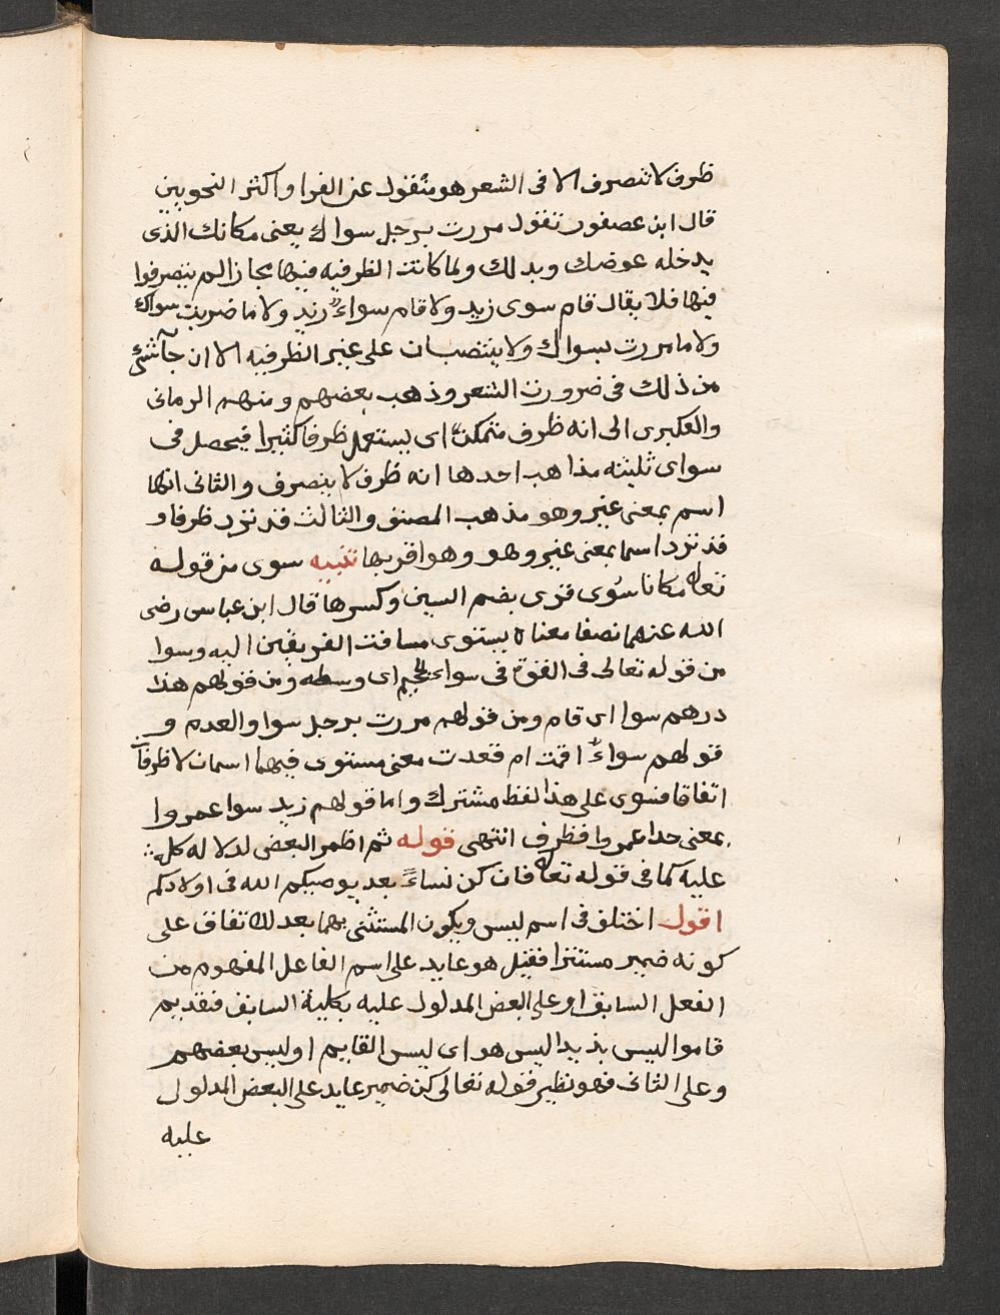 ظرف لا تتصرف الا فى الشعر هو منقول عن الفرا واكثر النحويين
قال ابن عصفور تقول مررت برجل سواك يعنى مكانك الذى
يدخله عوضك وبدلك ولما كانت الظرفيه فيها مجازا لم يتصرفوا
فيها فلا يقال قام سوى زيد ولا قام سواء زيد ولا ما ضربت سواك
ولا ما مررت بسواك ولا ينتصبان على غير الظرفيه الا ان جآ شئ
من ذلك فى ضرورت الشعر وذهب بعضهم ومنهم الرمانى
والعكبرى الى انه ظرف متمكن اى يستعمل ظرفا كثيرا فيحصل فى
سواى ثلثته مذاهب احدها انه ظرف لا يتصرف والثانى انها
اسم بمعنى غير وهو مذهب المصنف والثالث قد ترد ظرفا و
قد ترد اسما بمعنى غير وهو وهو اقربها تنبيه سوى من قوله
تعالى مكانا سُوى قرى بضم السين وكسرها قال ابن عباس رضى
الله عنهما نصفا معناه يستوى مسافت الفريقين اليه وسوا
من قوله تعالى فى سواء الجحيم اى وسطه ومن قولهم هذا
درهم سوا اى قام ومن قولهم مررت برجل سوا والعدم و
قولهم سواءٌ اقمت ام قعدت معنى مستوى فيهما اسمان لا ظرفان
اتفاقا فسوى على هذا لفظ مشترك واما قولهم زيد سوا عمروا
بمعنى حدا عمروا فظرف انتهى قوله ثم اظمر البعض لدلاله كل
عليه كما فى قوله تعالى فان كن نساءً بعد يوصيكم الله فى اولادكم
اقول اختلف فى اسم ليس ويكون المستثنى بهما بعد للاتفاق على
كونه ضمير مستترا فقيل هو عايد على اسم الفاعل المفهوم من
الفعل السابق او على البعض المدلول عليه بكلية السابق فتقديم
قاموا ليس بذيدا ليس هو اى ليس القايم او ليس بعضهم
وعلى الثانى فهو نظير قوله تعالى كن ضمير عايد على البعض المدلول
عليه